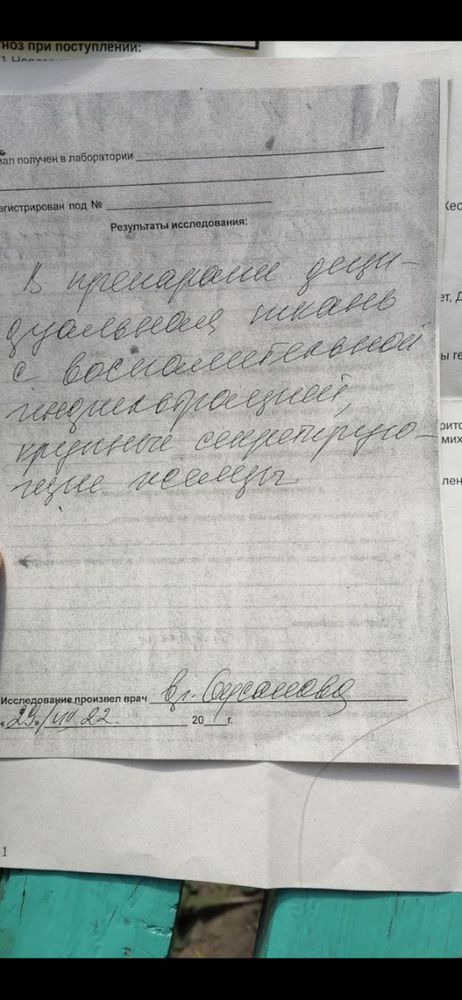 ноз при поступлении:
ал получен в лаборатории
егистрирован под №
Результаты исследования:
В препарате деци-
дуальная ткань
с воспалительной
инфильтрацией,
крупные секретирую-
щие железы
Исследование произвел врач вр.
29/VII.22. 20 г.
1